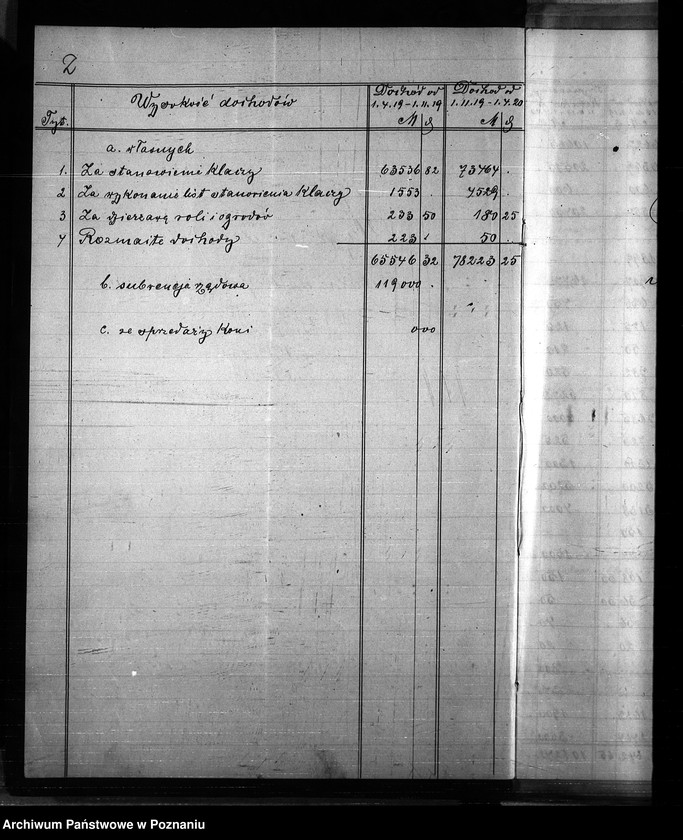 2
Tyt. Wysokość dochodów Dochód od 1.4.19 - 1.11.19 Dochód od 1.11.19 - 1.4.20
M ₰ M ₰
a. własnych
1. Za stanowienie klaczy 63536 82 73464 .
2 Za wykonanie list stanowienia klaczy 1553 . 4529 .
3 Za dzierżawę roli i ogrodów 233 50 180 25
4 Rozmaite dochody 223 . 50 .
65546 32 78223 25
b. subwencja rządowa 119000 .
c. ze sprzedaży koni 000
Archiwum Państwowe w Poznaniu